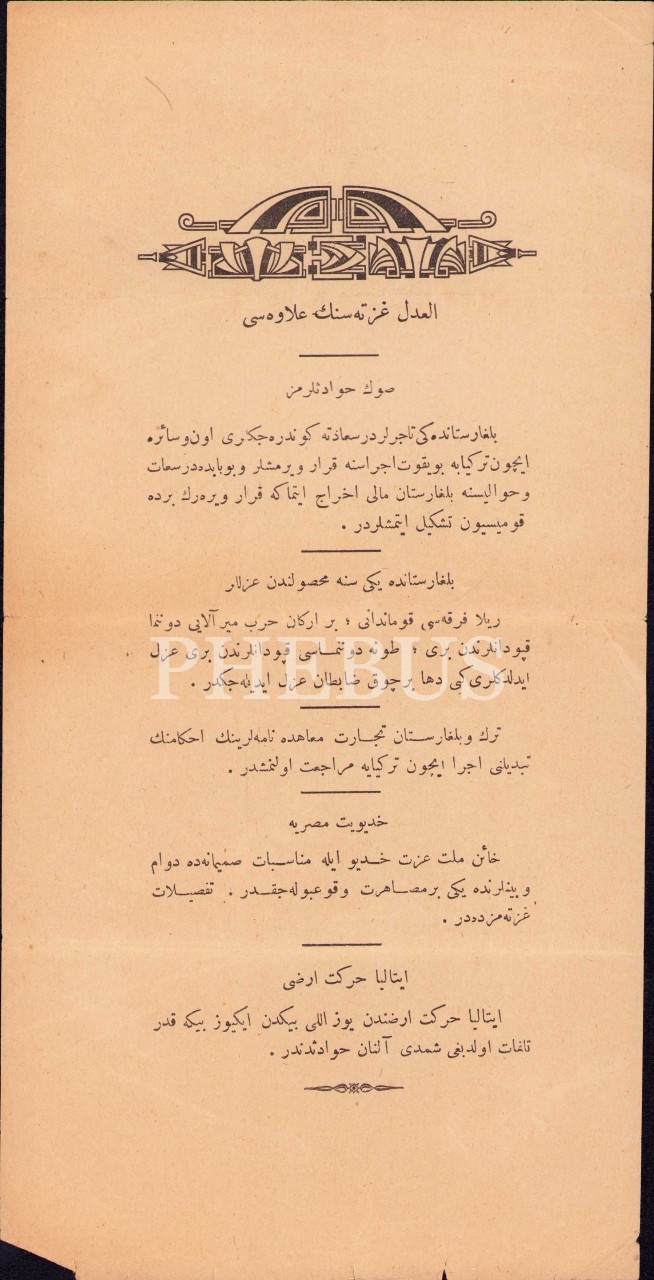 العدل غزته‌سنك علاوه‌سی
صوك حوادثلرمز
بلغارستانده‌كی تاجرلر درسعاذته كوندره‌جكلری اون و سائره
ایچون تركیایه بویقوت اجراسنه قرار ویرمشلر و بو بابده درسعات
و حوالیسنه بلغارستان مالی اخراج ایتمامكه قرار ویره‌رك برده
قومیسیون تشكیل ایتمشلردر .
بلغارستانده یكی سنه محصولندن عزللر
ریلا فرقه‌سی قوماندانی ؛ بر اركان حرب میرآلایی دوننما
قپودانلرندن بری ؛ طونه دوننماسی قپودانلرندن بری عزل
ایدلدكلری كبی دها برچوق ضابطان عزل ایدیله‌جكدر .
PHEBUS
ترك و بلغارستان تجارت معاهده نامه‌لرینك احكامنك
تبدیلنی اجرا ایچون تركیایه مراجعت اولنمشدر .
خدیویت مصریه
خائن ملت عزت خدیو ایله مناسبات صمیمانه‌ده دوام
و بینلرنده یكی بر مصاهرت وقوعبوله‌جقدر . تفصیلات
غزته‌مزده‌در .
ایتالیا حركت ارضی
ایتالیا حركت ارضندن یوز اللی بیكدن ایكیوز بیكه قدر
تلفات اولدیغی شمدی آلنان حوادثدندر .